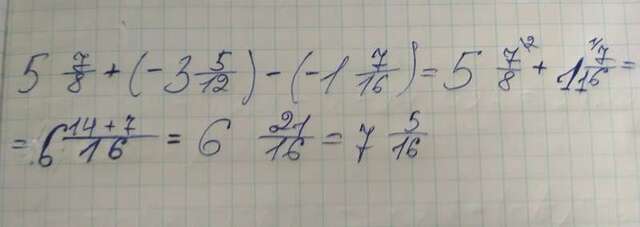 5 7/8 + (-3 5/12) - (-1 7/16) = 5 7/8 \2 + 1 7/16 \1 =
= 6 14+7/16 = 6 21/16 = 7 5/16